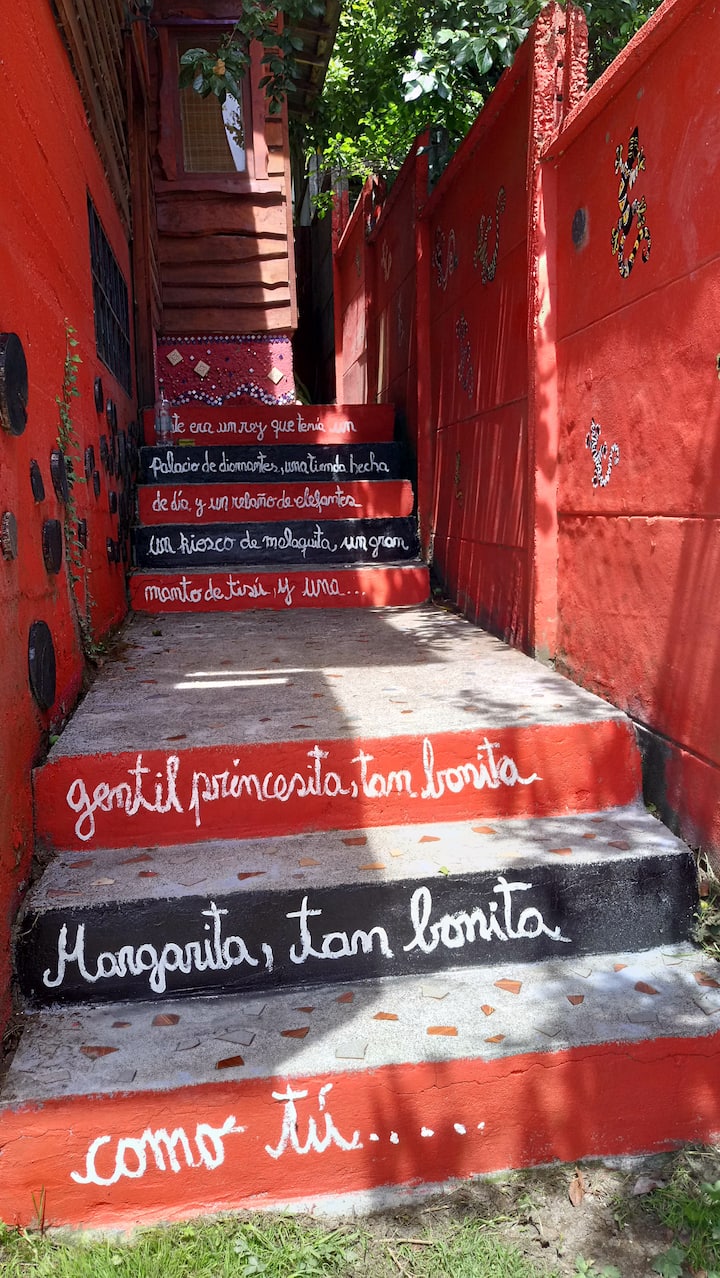 ste era un rey que tenía un
palacio de diamantes, una tienda hecha
de día, y un rebaño de elefantes
un kiosco de malaquita, un gran
manto de tisú, y una...
gentil princesita, tan bonita
Margarita, tan bonita
como tú.....